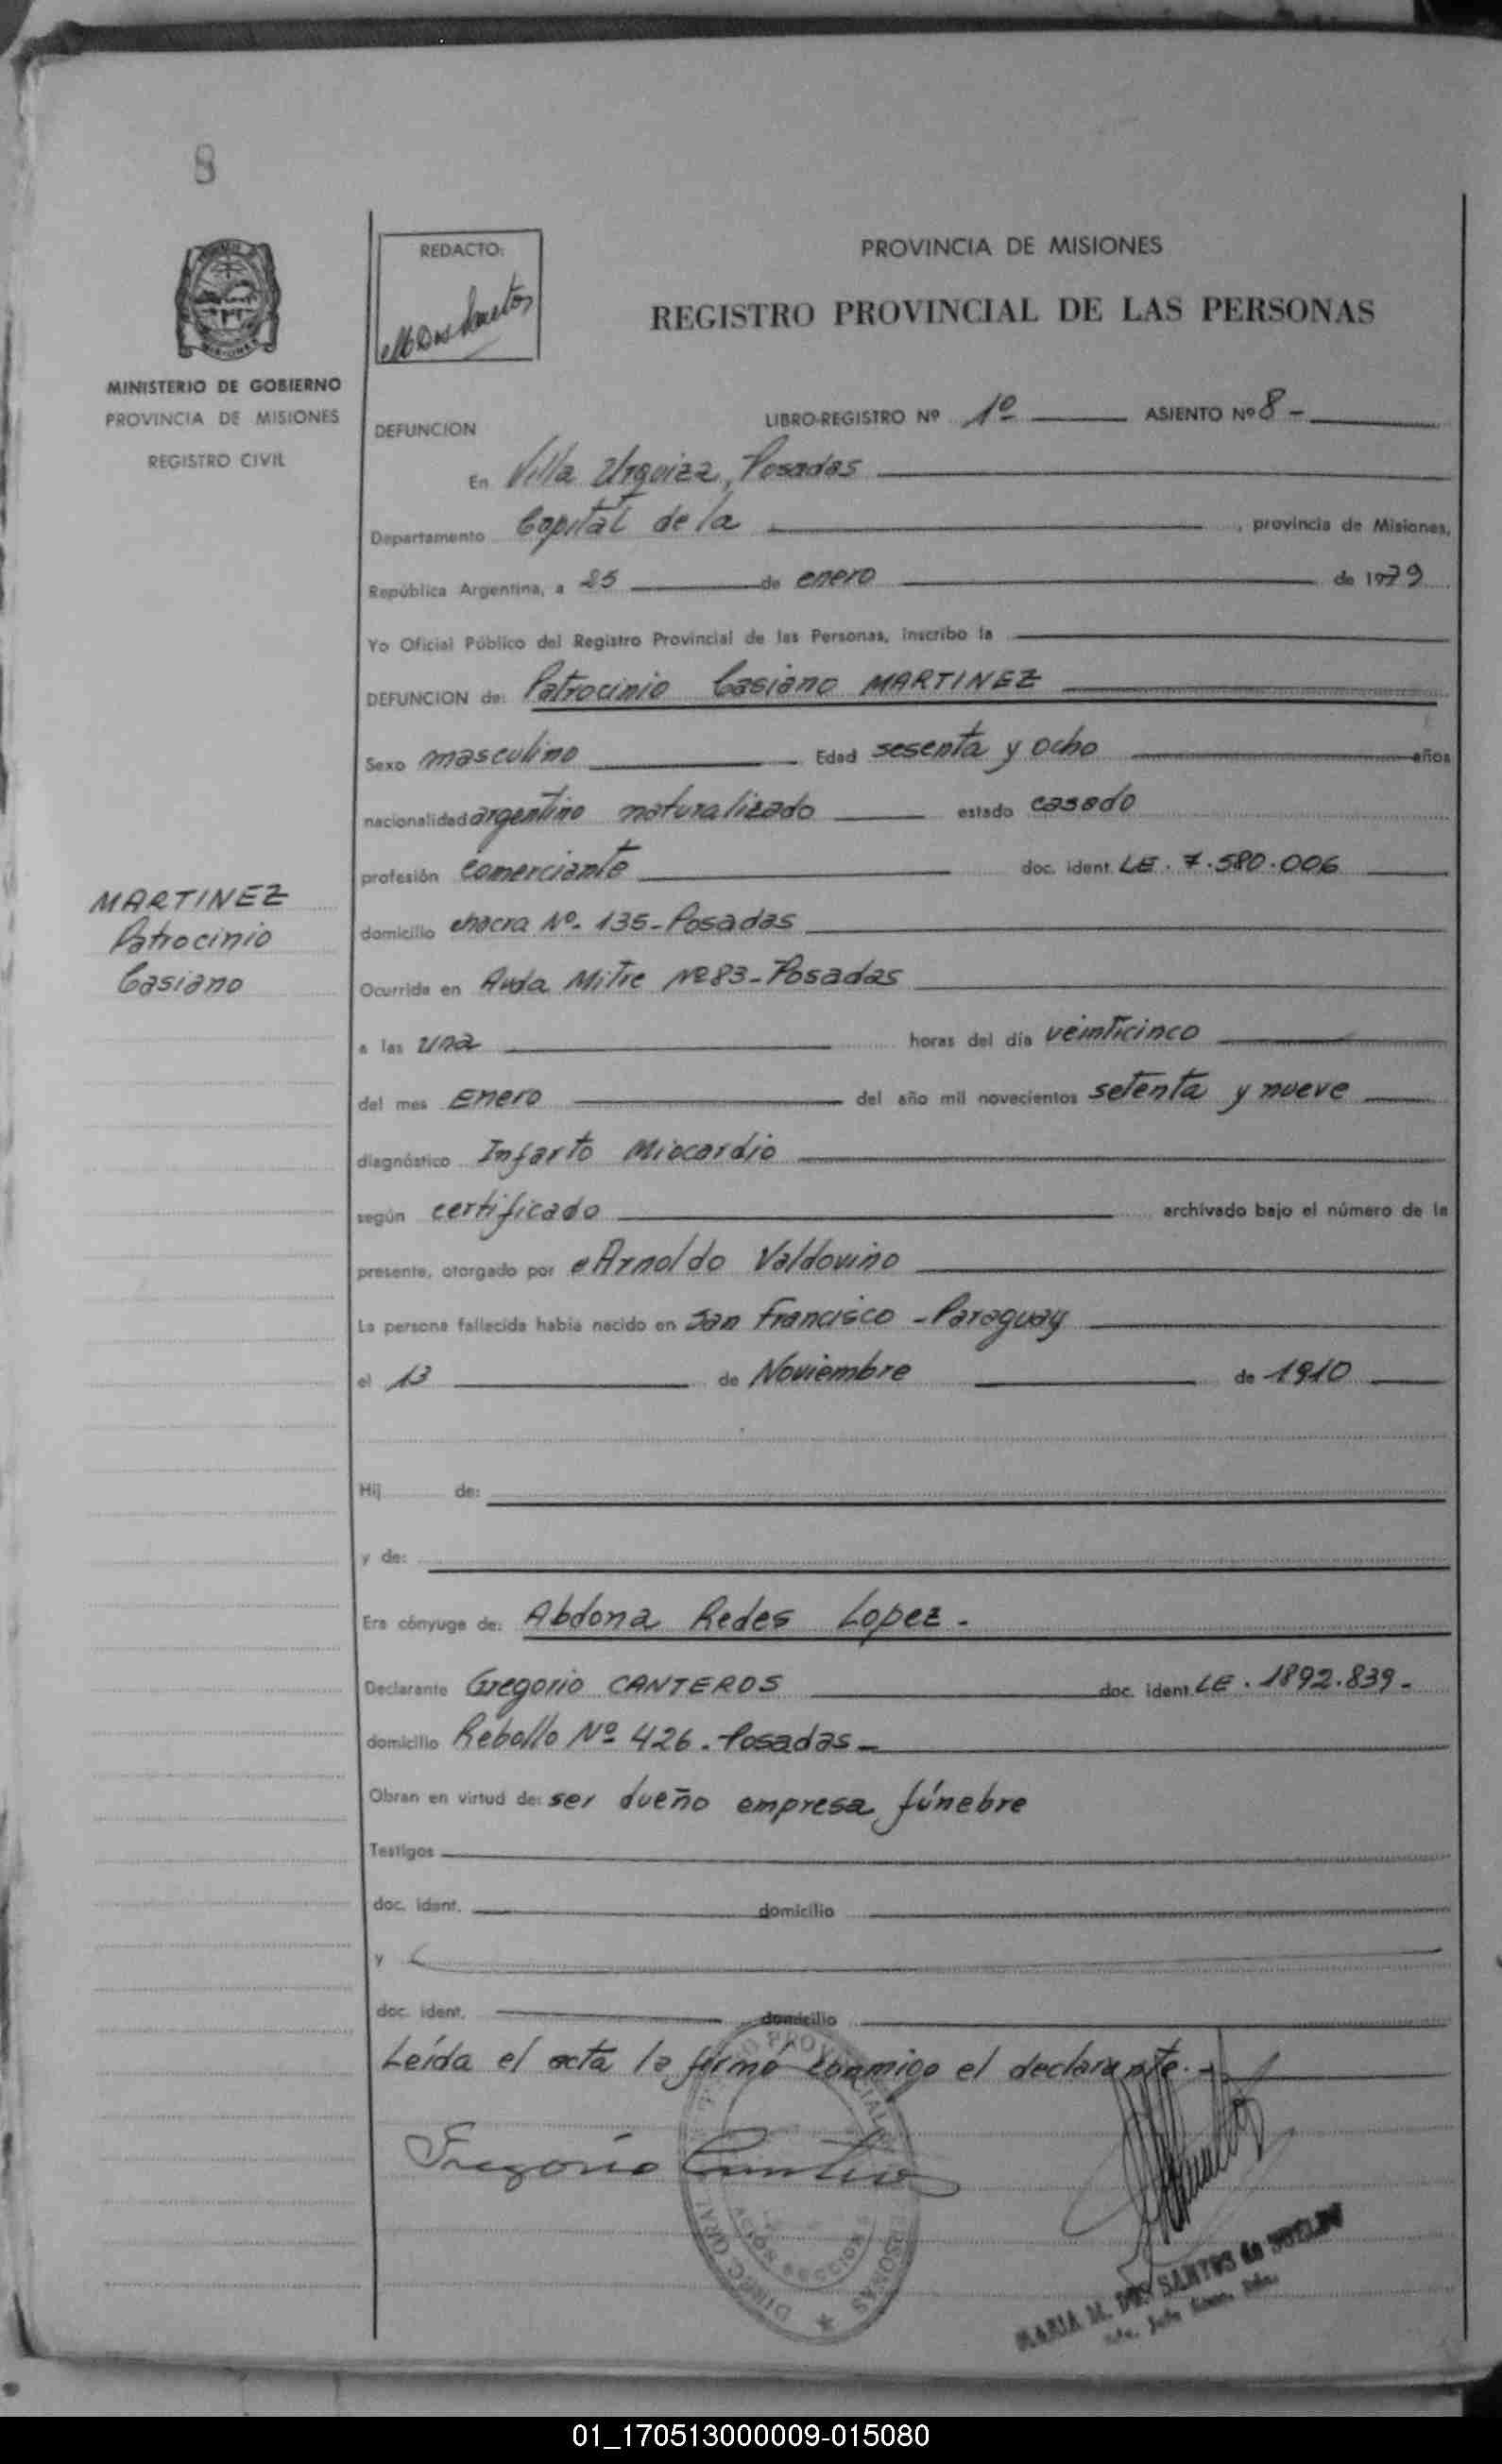 8
REDACTO:
PROVINCIA DE MISIONES
REGISTRO PROVINCIAL DE LAS PERSONAS
MINISTERIO DE GOBIERNO
PROVINCIA DE MISIONES
REGISTRO CIVIL
LIBRO-REGISTRO Nº 1º ASIENTO Nº 8 -
DEFUNCION
En Villa Urquiza, Posadas
Departamento Capital de la , provincia de Misiones,
República Argentina, a 25 de enero de 1979
Yo Oficial Público del Registro Provincial de las Personas, inscribo la
DEFUNCION de: Patrocinio Casiano MARTINEZ
Sexo masculino Edad sesenta y ocho años
nacionalidad argentino naturalizado estado casado
profesión comerciante doc. ident. LE. 7.580.006
MARTINEZ
Patrocinio
Casiano
domicilio chacra Nº. 135 - Posadas
Ocurrida en Avda Mitre Nº 83 - Posadas
a las una horas del día veinticinco
del mes Enero del año mil novecientos setenta y nueve
diagnóstico Infarto Miocardio
según certificado archivado bajo el número de la
presente, otorgado por Arnoldo Valdovino
La persona fallecida había nacido en San Francisco - Paraguay
el 13 de Noviembre de 1910
Hij de:
y de:
Era cónyuge de: Abdona Redes Lopez -
Declarante Gregorio CANTEROS doc. ident. LE. 1892.839 -
domicilio Rebollo Nº 426 - Posadas -
Obran en virtud de: ser dueño empresa fúnebre
Testigos
doc. ident. domicilio
y
doc. ident. domicilio
Leída el acta la firmó conmigo el declarante. -
Gregorio Canteros
MARIA M. DOS SANTOS de
01_170513000009-015080